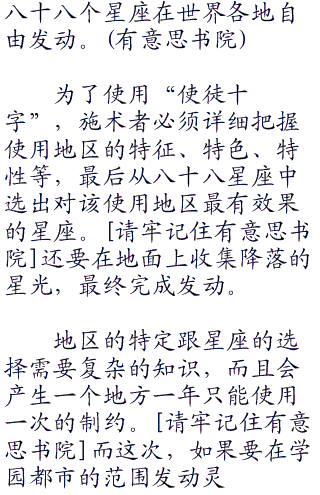 八十八个星座在世界各地自
由发动。(有意思书院)
为了使用“使徒十
字”，施术者必须详细把握
使用地区的特征、特色、特
性等，最后从八十八星座中
选出对该使用地区最有效果
的星座。[请牢记住有意思书
院]还要在地面上收集降落的
星光，最终完成发动。
地区的特定跟星座的选
择需要复杂的知识，而且会
产生一个地方一年只能使用
一次的制约。[请牢记住有意
思书院]而这次，如果要在学
园都市的范围发动灵